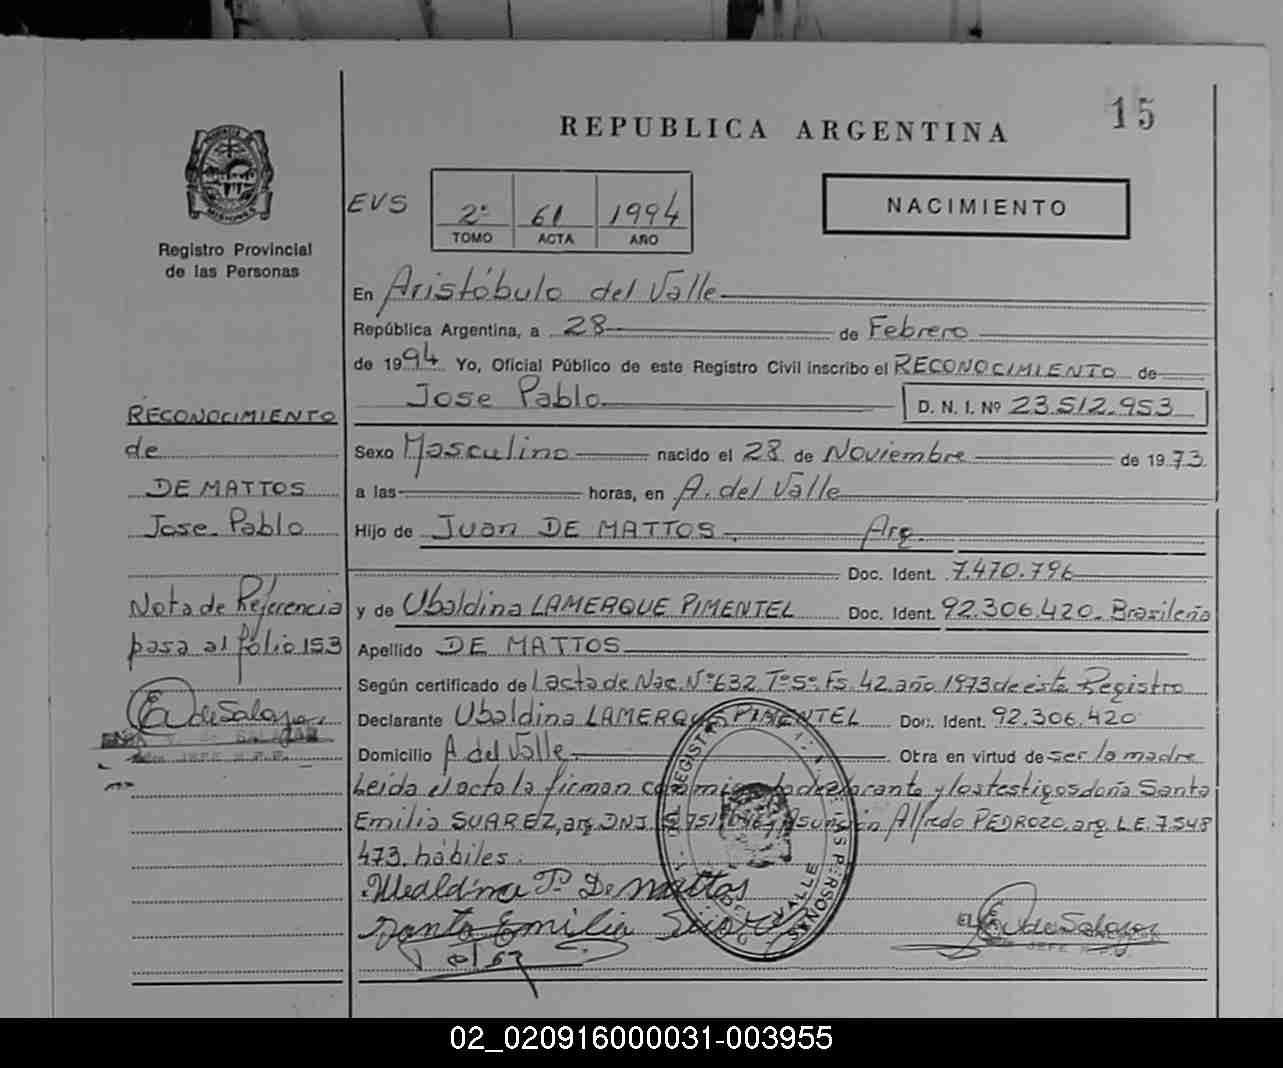 15
REPUBLICA ARGENTINA
MISIONES
Registro Provincial
de las Personas
EVS
2º 61 1994
TOMO ACTA AÑO
NACIMIENTO
En Aristóbulo del Valle
República Argentina, a 28 de Febrero
de 1994 Yo, Oficial Público de este Registro Civil inscribo el RECONOCIMIENTO de
Jose Pablo D. N. I. Nº 23.512.953
Sexo Masculino nacido el 28 de Noviembre de 1973
a las horas, en A. del Valle
Hijo de Juan DE MATTOS. Arg.
Doc. Ident. 7.470.796
y de Ubaldina LAMERQUE PIMENTEL Doc. Ident. 92.306.420. Brasileña
Apellido DE MATTOS
Según certificado de l acta de Nac. Nº 632 Tº 5º Fs. 42. año 1973 de este Registro
Declarante Ubaldina LAMERQUE PIMENTEL Doc. Ident. 92.306.420
Domicilio A. del Valle. Obra en virtud de ser la madre
Leida el acta la firman conmigo la declarante y los testigos doña Santa
Emilia SUAREZ, arg. DNI. Asunción Alfredo PEDROZO, arg. L.E. 7.548
473. hábiles.
De mattos
Santa Emilia Suarez
RECONOCIMIENTO
de
DE MATTOS
Jose Pablo
Nota de Referencia
pasa al fólio 153
de Salazar
de Salazar
02_020916000031-003955